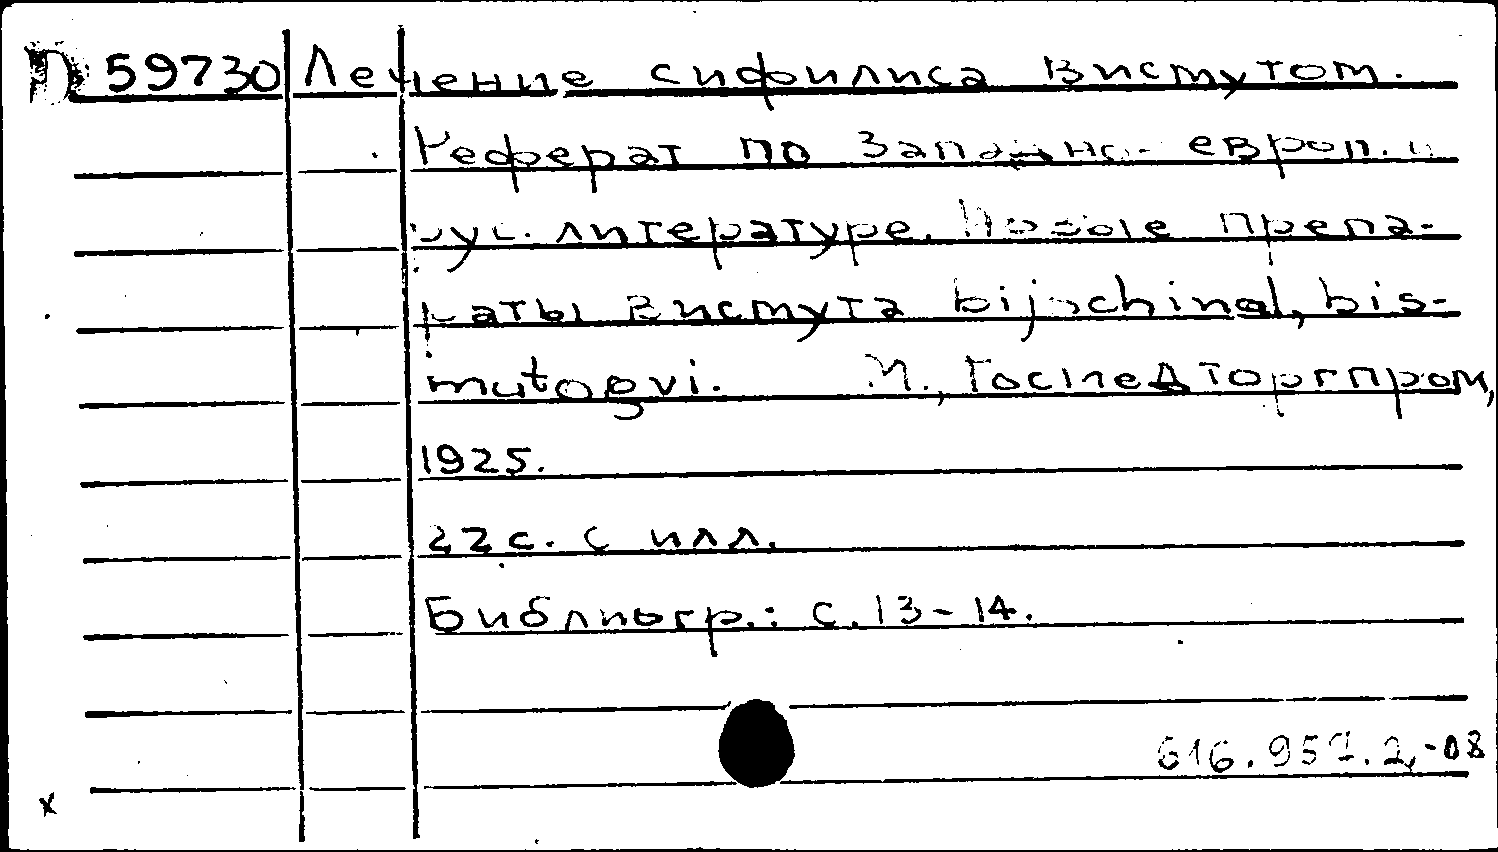 П 59730 Лечение сифилиса висмутом.
Реферат по западно-европ. и
рус. литературе. Новые препа-
раты висмута bijochinol, bis-
mutogvi. М., Госмедторгпром,
1925.
22 с. с илл.
Библиогр.: с. 13-14.
616.957.2,-08
x